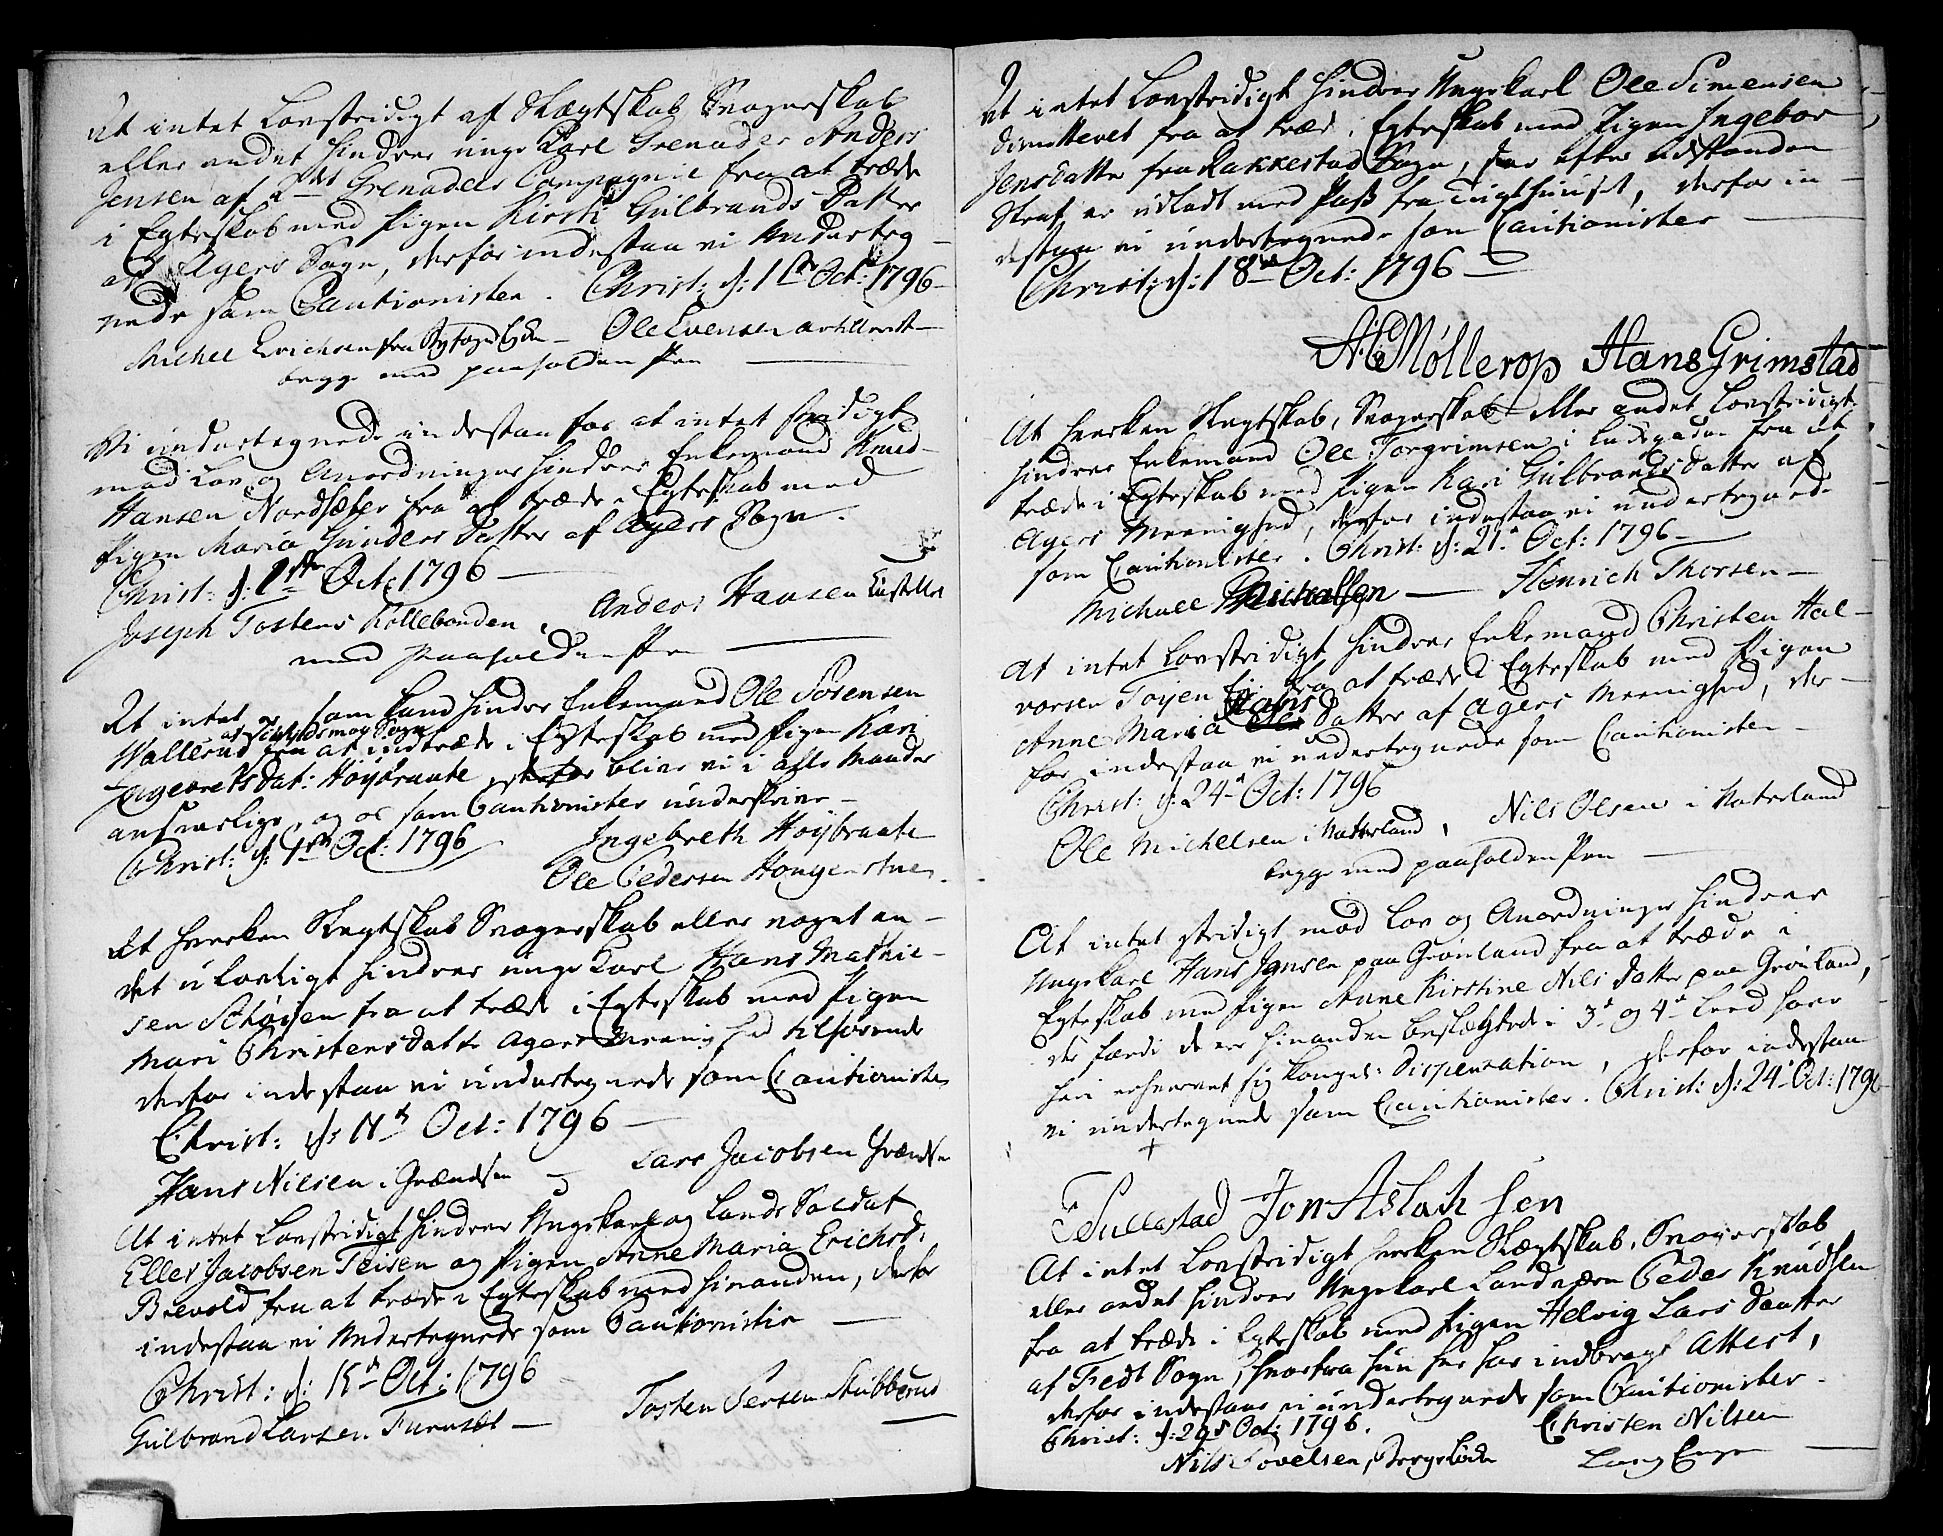 At intet Lovstridigt af Slægtskab Svogerskab
eller andet hindrer unge Karl Grenader Anders
Jensen af Grenadeer Compagnie fra at træde
i Egteskab med Pigen Kirsti Gulbrands Datter
af Agers Sogn, derfor indestaa vi Underteg-
nede som Cautionister. Christ: d: 1ste Oct: 1796
Michel Erichsen fra Ole Evensen
begge med paaholden Pen
Vi undertegnede indestaa for at intet stridigt
mod Lov og Anordninger hindrer Enkemand Knud
Hansen Nordsæter fra at træde i Egteskab med
Pigen Maria Gunders Datter af Agers Sogn.
Christ: d: Oct: 1796
Joseph Tostens Kollebonden, Anders Hansen
med paaholden Pen
At intet som kand hindre Enkemand Ole Sørensen
Wallerud fra at indtræde i Egteskab med Pigen Kari
Ingebretsdat: Høybraate, derfor blive vi i alle Maader
ansvarlige, og os som Cautionister underskrive
Christ: d: Oct: 1796 Ingebreth Høybraate
Ole Pedersen Hougenstuen.
At hverken Slegtskab Svogerskab eller noget an-
det ulovligt hindrer unge Karl Hans Mathie-
sen Schøyen fra at træde i Egteskab med Pigen
Mari Christensdatter Agers Menighed tilhørende
derfor indestaa vi undertegnede som Cautionister
Christ: d: 11te Oct: 1796
Hans Nielsen i Grændsen Lars Jacobsen Grændsen
At intet Lovstridigt hindrer Ungekarl og Land Soldat
Eller Jacobsen Teisen og Pigen Anne Maria Erichsd:
Brevold fra at træde i Egteskab med hinanden, derfor
indestaa vi Undertegnede som Cautionister
Christ: d: 15de Oct: 1796
Gulbrand Larsen Furuset Tosten Persen Stubberud
At intet Lovstridigt hindrer Ungekarl Ole Simensen
fra at træde i Egteskab med Pigen Ingebor
Jensdatter fra Rakkestad Sogn, der efter udstanden
Straf er udladt med Pass fra Tugthuuset, derfor in-
destaa vi undertegnede som Cautionister
Christ: d: 18de Oct: 1796
Møllerop Hans Grimstad
At hverken Slegtskab, Svogerskab eller andet Lovstridigt
hindrer Enkemand Ole Torgrimsen i fra at
træde i Egteskab med Pigen Kari Gulbrands Datter af
Agers Meenighed, derfor indestaa vi undertegnede
som Cautionister. Christ: d: 21de Oct: 1796
Michael Michelsen Henrich Thorsen
At intet Lovstridigt hindrer Enkemand Christen Hal-
vorsen Tøyen fra at træde i Egteskab med Pigen
Anne Maria Hans Datter af Agers Meenighed, der-
for indestaa vi undertegnede som Cautionister
Christ: d: 24de Oct: 1796
Ole Michelsen i Vatterland, Nils Olsen i Vaterland
begge med paaholden Pen
At intet stridigt mod Lov og Anordninger hindrer
Ungekarl Hans Jensen paa Grønland fra at træde i
Egteskab med Pigen Anne Kirstine Nils Datter paa Grønland,
thi fordi de er hinanden beslægtede i 3de og 4de Leed har
han erhvervet sig kongel: Dispensation, derfor indestaa
vi undertegnede som Cautionister. Christ: d: 24de Oct: 1796
Tullestad Jon Aslach sen
At intet Lovstridigt hverken Slægtskab, Svogerskab
eller andet hindrer Ungekarl Landværn Peder Knudsen
fra at træde i Egteskab med Pigen Helvig Lars Daatter
af Fedt Sogn, hvorfra hun her har indbragt Attest,
derfor indestaar vi undertegnede som Cautionister.
Christ: d: 29de Oct: 1796. Christen Nilsen
Nils Povelsen,